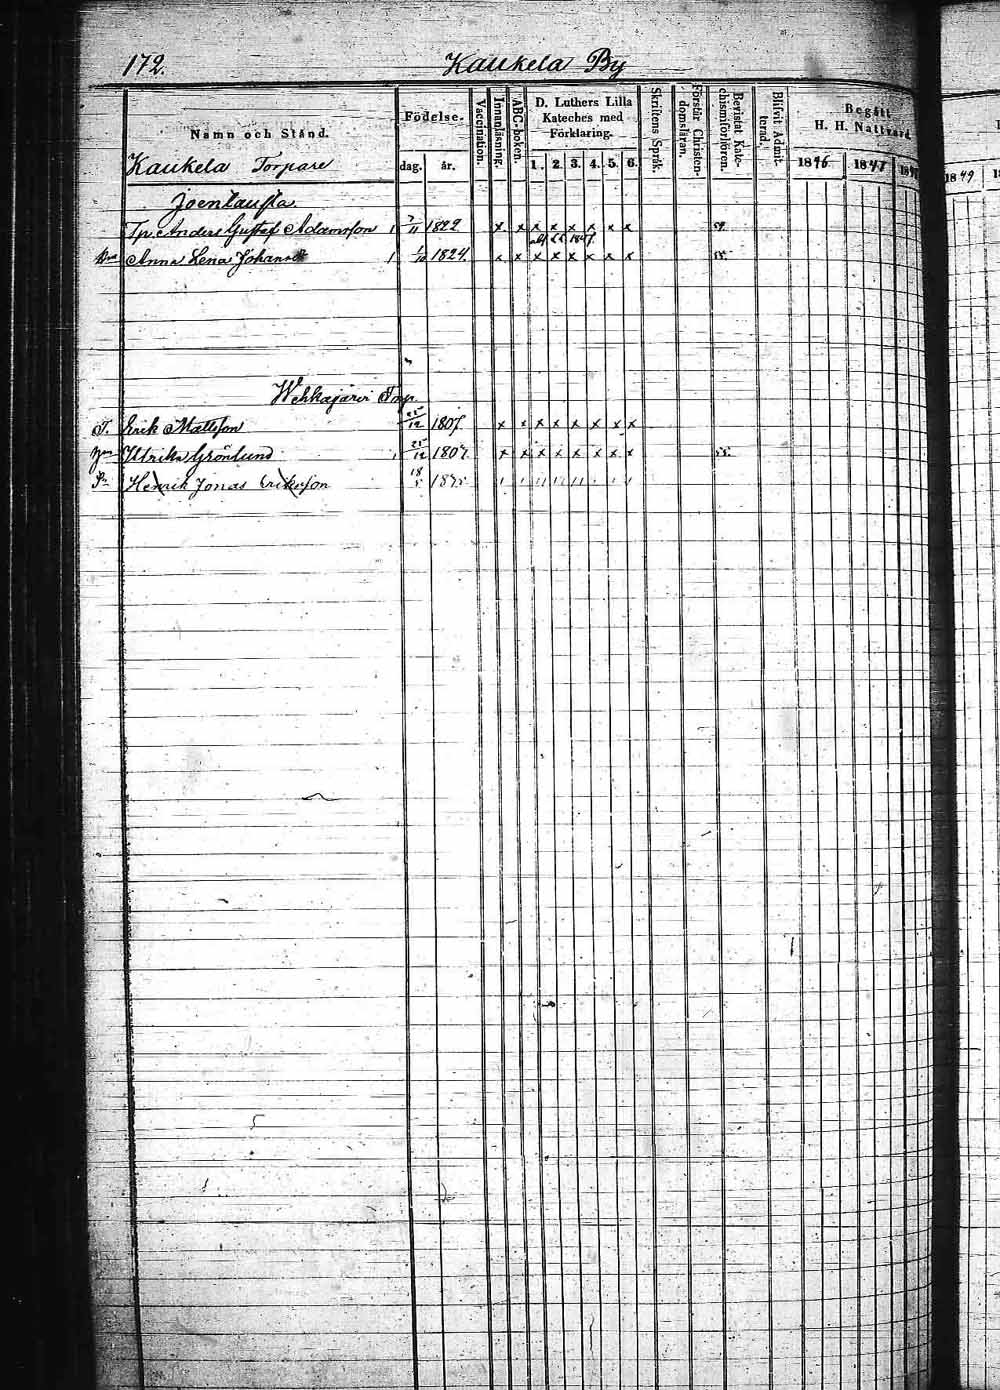 172. Kaukela By
Namn och Stånd. Födelse. Vaccination. Innanläsning. ABC-boken. D. Luthers Lilla Kateches med Förklaring. Skriftens Språk. Förstår Christendomsläran. Bevistat Katechismiförhören. Blifvit Admitterad. Begått H. H. Nattvard
Kaukela Torpare dag. år. 1. 2. 3. 4. 5. 6. 1846 1847 1849
Tp. Anders Gustaf Adamsson 1 7/11 1822 x x x x x x x x
1847.
Anna Lena Johansdr 1 1/10 1824. x x x x x x x x
Wehkajärvi Torp
T. Erik Mattsson 25/12 1807. x x x x x x x x
Ulrika Grönlund 1 25/12 1807. x x x x x x x x
Henrik Jonas Eriksson 18/5